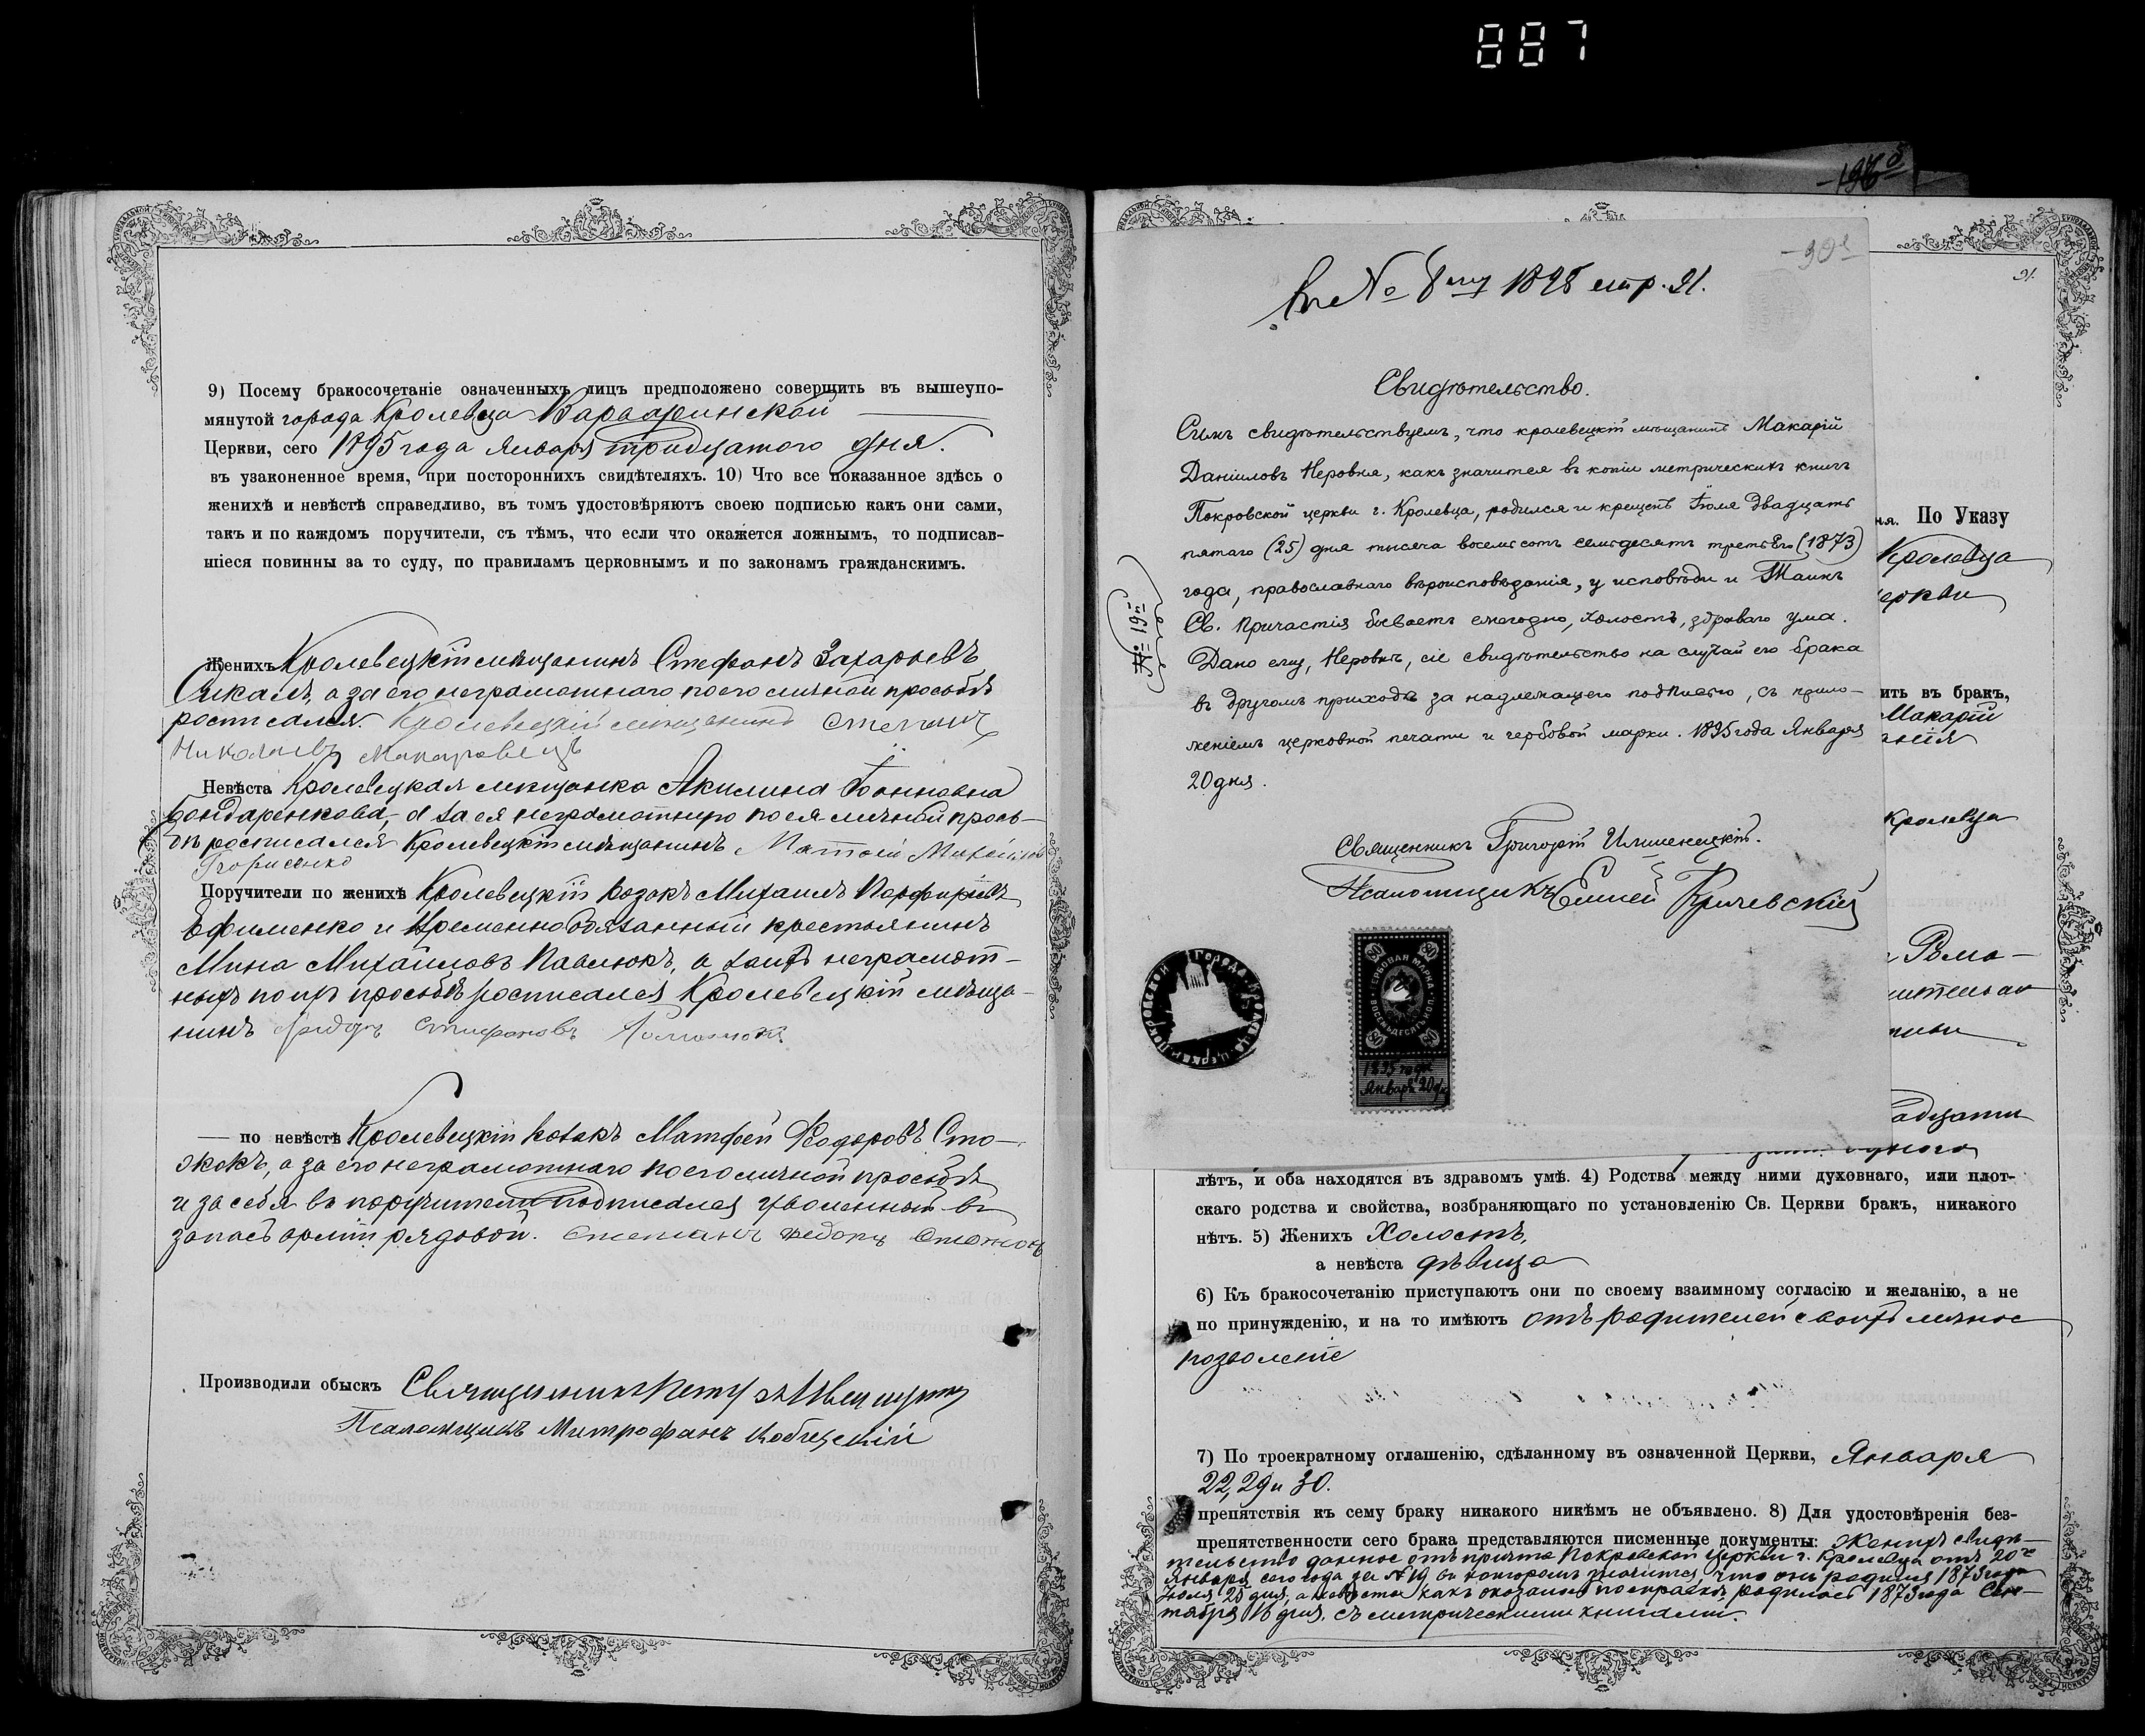 887
9) Посему бракосочетаніе означенныхъ лицъ предположено совершить въ вышеупо-
мянутой города Кролевца Варваринской
Церкви, сего 1895 года Января тридцатого дня.
въ узаконенное время, при постороннихъ свидѣтеляхъ. 10) Что все показанное здѣсь о
женихѣ и невѣстѣ справедливо, въ томъ удостовѣряютъ своею подписью какъ они сами,
такъ и по каждомъ поручители, съ тѣмъ, что если что окажется ложнымъ, то подписав-
шіеся повинны за то суду, по правиламъ церковнымъ и по законамъ гражданскимъ.
Женихъ Кролевецкій мѣщанинъ Стефанъ Захарьевъ
а за его неграмотнаго по его личной просьбѣ
росписался Кролевецкій мещанинъ Степанъ
Николаевъ Макаровецъ
Невѣста Кролевецкая мещанка Акилина Іоанновна
Бондаренкова, а за ея неграмотную по ея личной прось-
бѣ росписался Кролевецкій мѣщанинъ
Борисенко
Поручители по женихѣ Кролевецкій козакъ Михаилъ Порфирьевъ
Ефименко и временно обязанный крестьянинъ
Мина Михайловъ Павлюкъ, а за ихъ неграмот-
ныхъ по ихъ просьбѣ росписался Кролевецкій мѣща-
нинъ
по невѣстѣ Кролевецкій козакъ Матфей Ѳеодоровъ Сто-
жокъ, а за его неграмотнаго по его личной просьбѣ
и за себя въ поручители подписался уволенный въ
запасъ арміи рядовой. Степанъ Федоръ Стожокъ
Производили обыскъ Священникъ Петръ
Псаломщикъ Митрофанъ
-90а
Къ № 8му 1895 стр. 91.
Свидѣтельство.
Симъ свидѣтельствуемъ, что кролевецкій мѣщанинъ Макарій
Даніиловъ Неровня, какъ значится въ копіи метрическихъ книгъ
Покровской церкви г. Кролевца, родился и крещенъ Іюля двадцать
пятаго (25) дня тысяча восемьсотъ семьдесятъ третьего (1873)
года, православнаго вѣроисповѣданія, у исповѣди и Таинъ
Св. Причастія бываетъ ежегодно, холостъ, здраваго ума.
Дано ему, Неровнѣ, сіе свидѣтельство на случай его брака
въ другомъ приходѣ за надлежащею подписью, съ прило-
женіемъ церковной печати и гербовой марки. 1895 года Января
20 дня.
№ 19й
Священникъ Григорій
Псаломщикъ Кричевскій
ГЕРБОВАЯ МАРКА
ВОСЕМЬДЕСЯТЪ КОП.
80
1895 года
Января 20 дня
91.
ня. По Указу
Кролевца
Церкви
ить въ бракъ,
Макарій
Кролевца
Рома-
адцати
одного
лѣтъ, и оба находятся въ здравомъ умѣ. 4) Родства между ними духовнаго, или плот-
скаго родства и свойства, возбраняющаго по установленію Св. Церкви бракъ, никакого
нѣтъ. 5) Женихъ Холостъ,
а невѣста дѣвица
6) Къ бракосочетанію приступаютъ они по своему взаимному согласію и желанію, а не
по принужденію, и на то имѣютъ отъ родителей своихъ личное
позволеніе
7) По троекратному оглашенію, сдѣланному въ означенной Церкви, Января
22, 29 и 30.
препятствія къ сему браку никакого никѣмъ не объявлено. 8) Для удостовѣренія без-
препятственности сего брака представляются писменные документы: Женихъ свидѣ-
тельство данное отъ причта Покровской церкви г. Кролевца отъ 20го
Января сего года за № 19 въ которомъ значится, что онъ родился 1873 года
Іюля 25 дня, а невѣста какъ оказалось по справкѣ, родилась 1873 года Сен-
тября 16 дня, съ метрическими книгами.